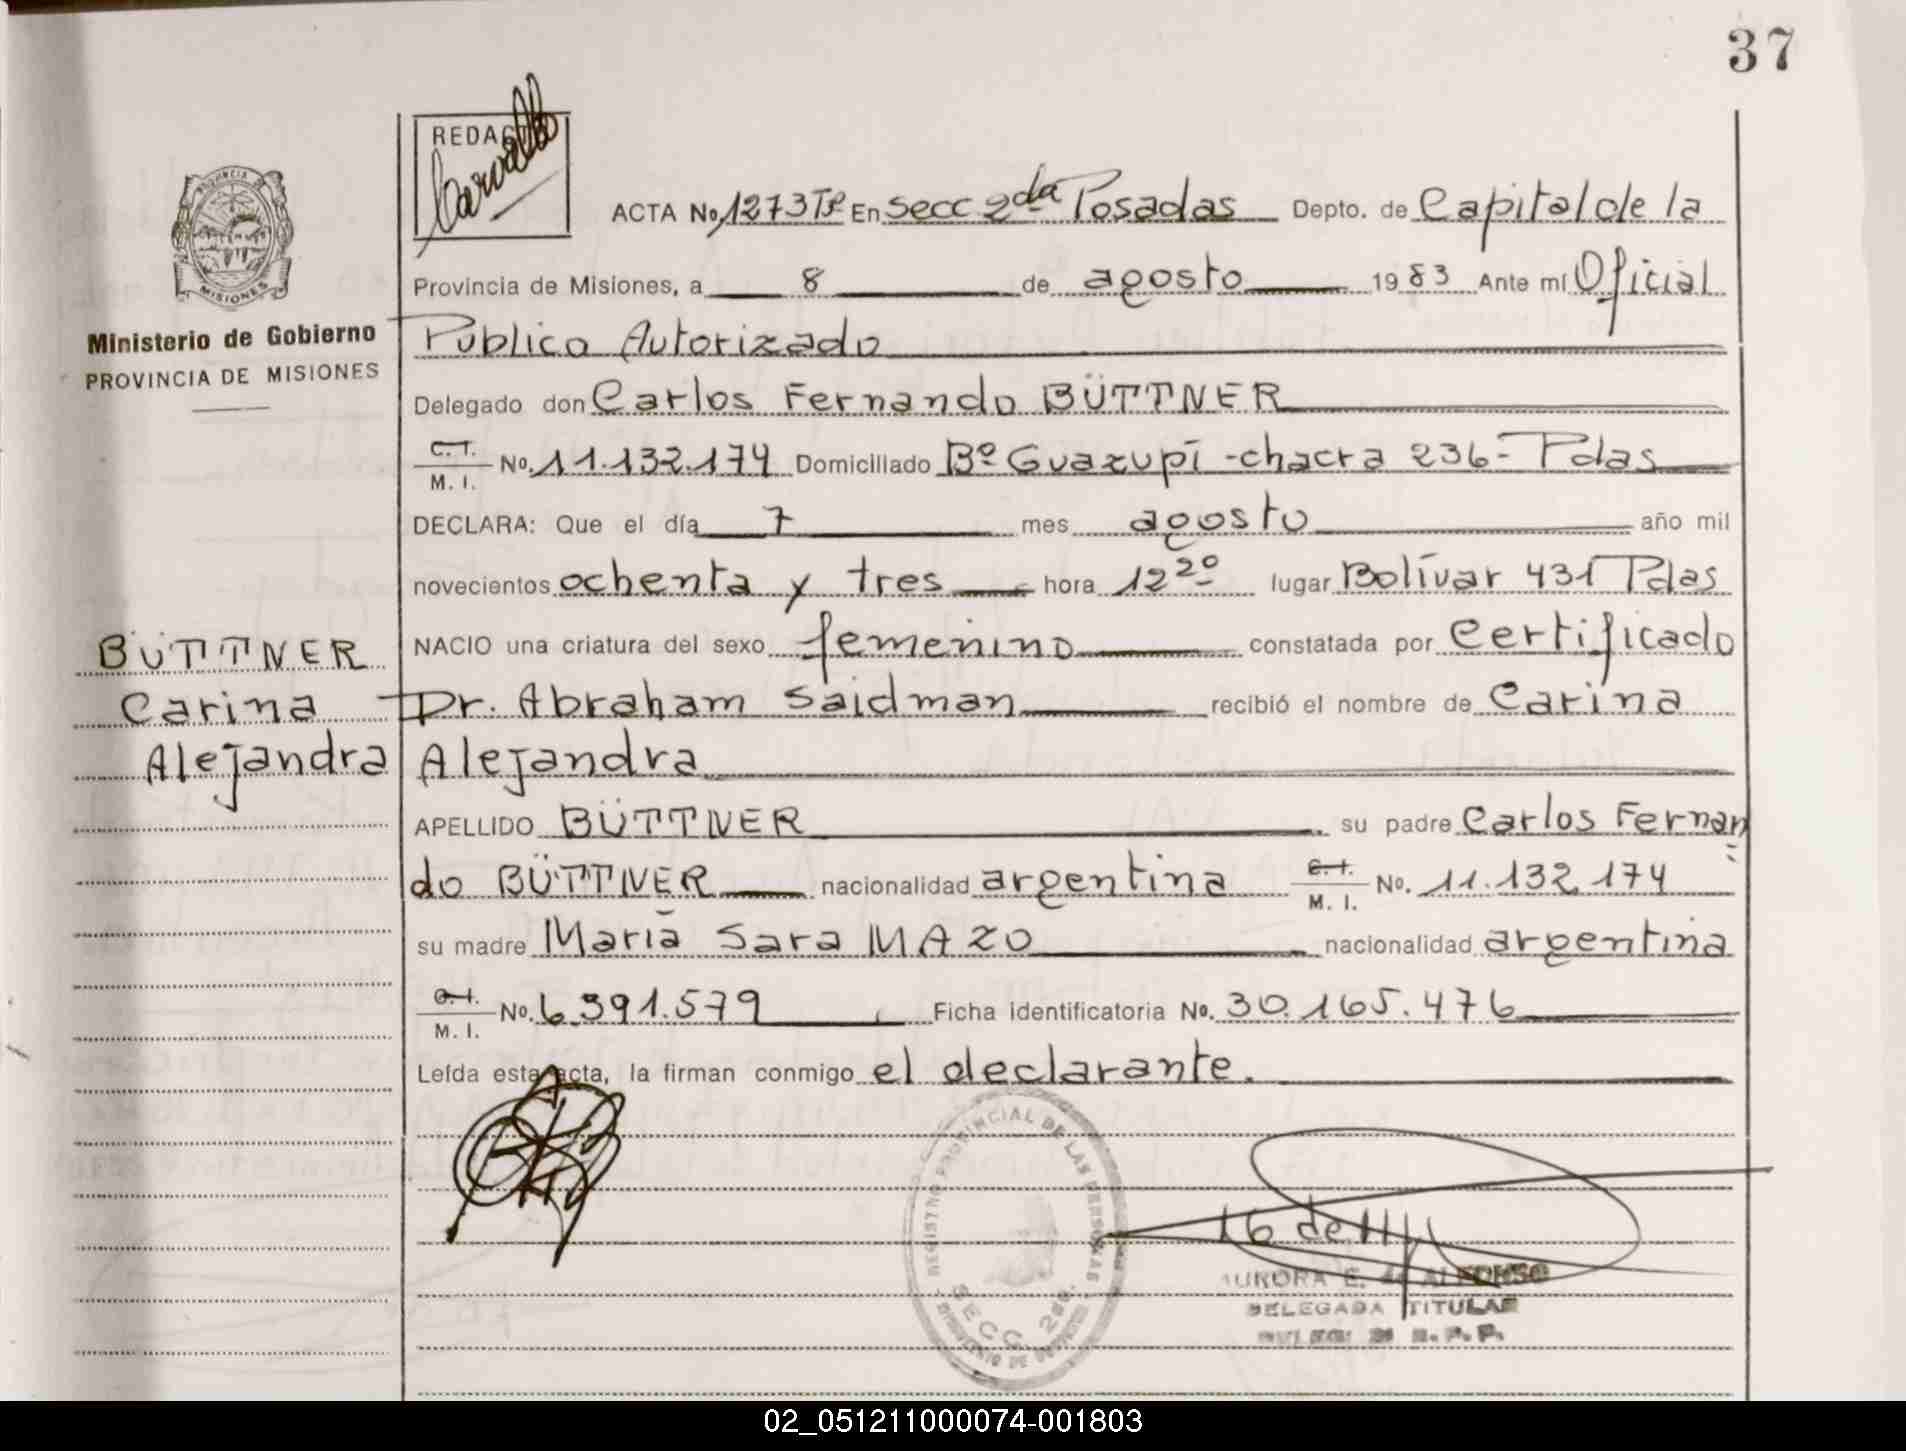 37
REDAC
Carvallo
ACTA No. 1273 Tº En Secc 2da Posadas Depto. de Capital de la
PROVINCIA DE
MISIONES
Provincia de Misiones, a 8 de agosto 1983 Ante mí Oficial
Ministerio de Gobierno
PROVINCIA DE MISIONES
Público Autorizado
Delegado don Carlos Fernando BÜTTNER
C. I.
M. I. No. 11.132.174 Domiciliado Bº Guazupí - chacra 236 - Pdas
DECLARA: Que el día 7 mes agosto año mil
novecientos ochenta y tres hora 12 20 lugar Bolívar 431 Pdas
NACIO una criatura del sexo femenino constatada por Certificado
BÜTTNER
Carina
Alejandra
Dr. Abraham Saidman recibió el nombre de Carina
Alejandra
APELLIDO BÜTTNER su padre Carlos Fernan=
do BÜTTNER nacionalidad argentina C. I.
M. I. No. 11.132.174
su madre María Sara MAZO nacionalidad argentina
C. I.
M. I. No. 6.391.579 Ficha identificatoria No. 30.165.476
Leída esta acta, la firman conmigo el declarante.
REGISTRO PROVINCIAL DE LAS PERSONAS
SECC. 2da.
MINISTERIO DE GOBIERNO
AURORA E. de ALFONSO
DELEGADA TITULAR
R. P. P.
02_051211000074-001803